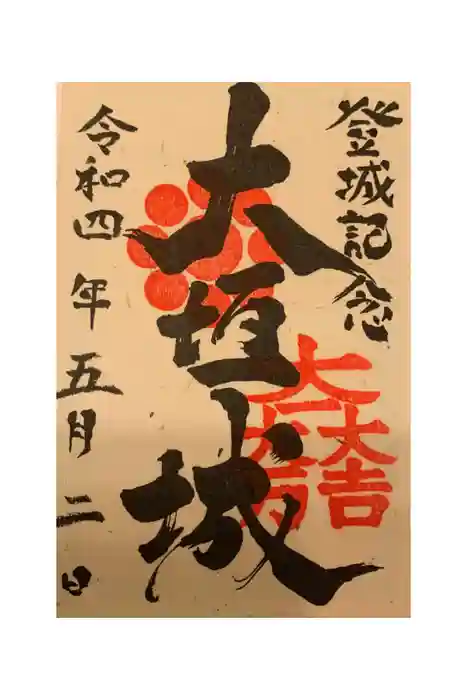 登城記念
大垣城
大一大万大吉
令和四年五月二日